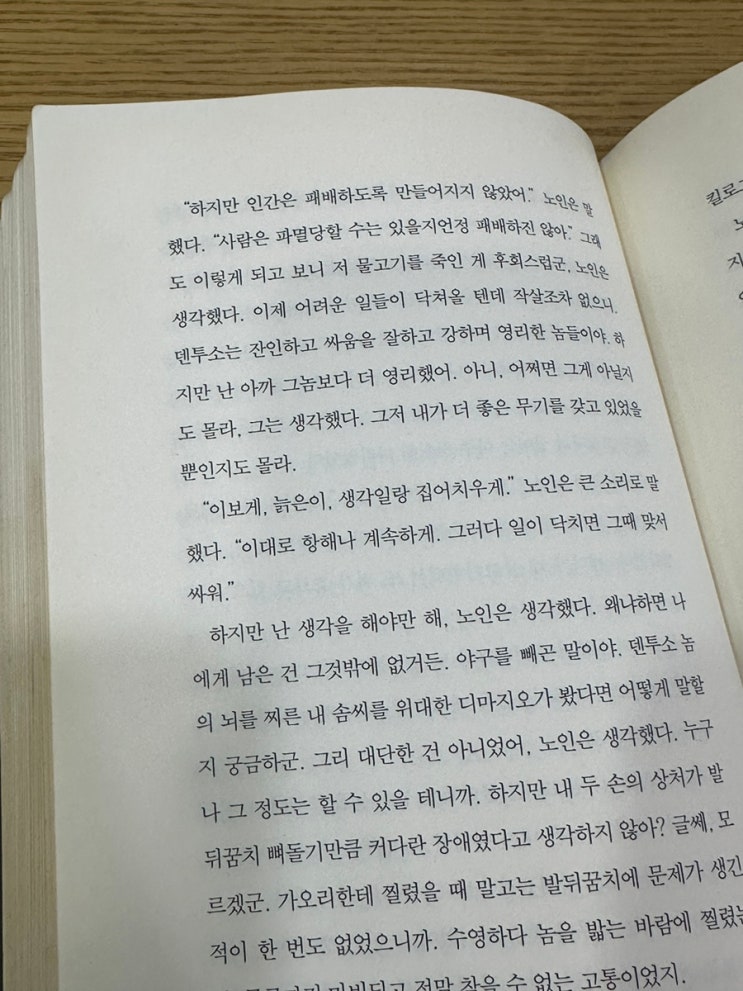 “하지만 인간은 패배하도록 만들어지지 않았어.” 노인은 말
했다. “사람은 파멸당할 수는 있을지언정 패배하진 않아.” 그래
도 이렇게 되고 보니 저 물고기를 죽인 게 후회스럽군, 노인은
생각했다. 이제 어려운 일들이 닥쳐올 텐데 작살조차 없으니.
덴투소는 잔인하고 싸움을 잘하고 강하며 영리한 놈들이야. 하
지만 난 아까 그놈보다 더 영리했어. 아니, 어쩌면 그게 아닐지
도 몰라, 그는 생각했다. 그저 내가 더 좋은 무기를 갖고 있었을
뿐인지도 몰라.
“이보게, 늙은이, 생각일랑 집어치우게.” 노인은 큰 소리로 말
했다. “이대로 항해나 계속하게. 그러다 일이 닥치면 그때 맞서
싸워.”
하지만 난 생각을 해야만 해, 노인은 생각했다. 왜냐하면 나
에게 남은 건 그것밖에 없거든. 야구를 빼곤 말이야. 덴투소 놈
의 뇌를 찌른 내 솜씨를 위대한 디마지오가 봤다면 어떻게 말할
지 궁금하군. 그리 대단한 건 아니었어, 노인은 생각했다. 누구
나 그 정도는 할 수 있을 테니까. 하지만 내 두 손의 상처가 발
뒤꿈치 뼈돌기만큼 커다란 장애였다고 생각하지 않아? 글쎄, 모
르겠군. 가오리한테 찔렸을 때 말고는 발뒤꿈치에 문제가 생긴
적이 한 번도 없었으니까. 수영하다 놈을 밟는 바람에 찔렸는
정말 참을 수 없는 고통이었지.
킬로그
지